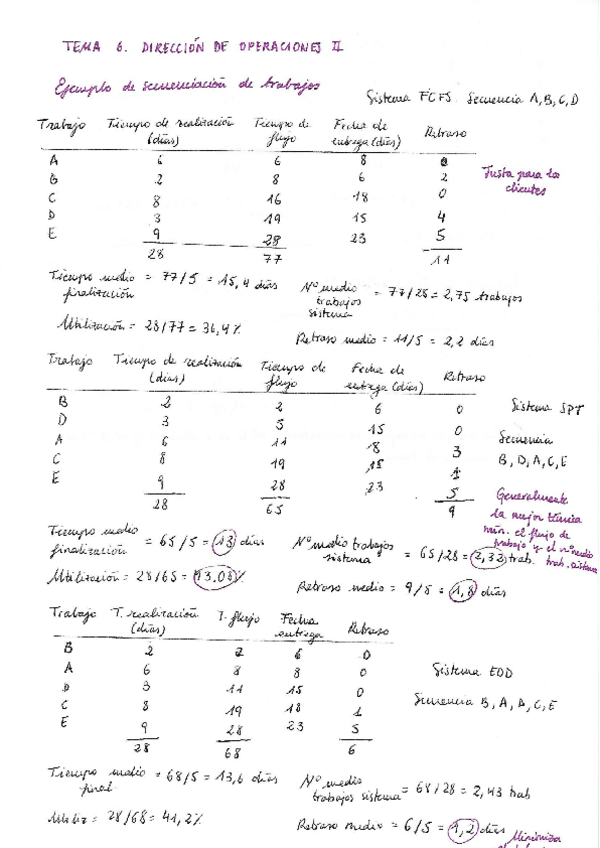 TEMA 6. DIRECCIÓN DE OPERACIONES II
Ejemplo de secuenciación de trabajos
Sistema FCFS Secuencia A,B,C,D
Trabajo Tiempo de realización (días) Tiempo de flujo Fecha de entrega (días) Retraso
A 6 6 8 0
B 2 8 6 2
C 8 16 18 0
D 3 19 15 4
E 9 28 23 5
28 77 11
Justa para los
clientes
Tiempo medio finalización = 77/5 = 15,4 días
Nº medio trabajos sistema = 77/28 = 2,75 trabajos
Utilización = 28/77 = 36,4%
Retraso medio = 11/5 = 2,2 días
Trabajo Tiempo de realización (días) Tiempo de flujo Fecha de entrega (días) Retraso
B 2 2 6 0
D 3 5 15 0
A 6 11 8 3
C 8 19 18 1
E 9 28 23 5
28 65 9
Sistema SPT
Secuencia
B, D, A, C, E
Generalmente
la mejor técnica
min. el flujo de
trabajo y el nº medio
trab. sistema
Tiempo medio finalización = 65/5 = 13 días
Nº medio trabajos sistema = 65/28 = 2,32 trab.
Utilización = 28/65 = 43,08%
Retraso medio = 9/5 = 1,8 días
Trabajo T. realización (días) T. flujo Fecha entrega Retraso
B 2 2 6 0
A 6 8 8 0
D 3 11 15 0
C 8 19 18 1
E 9 28 23 5
28 68 6
Sistema EDD
Secuencia B, A, D, C, E
Tiempo medio final = 68/5 = 13,6 días
Nº medio trabajos sistema = 68/28 = 2,43 trab
Utiliz = 28/68 = 41,2%
Retraso medio = 6/5 = 1,2 días
Minimiza